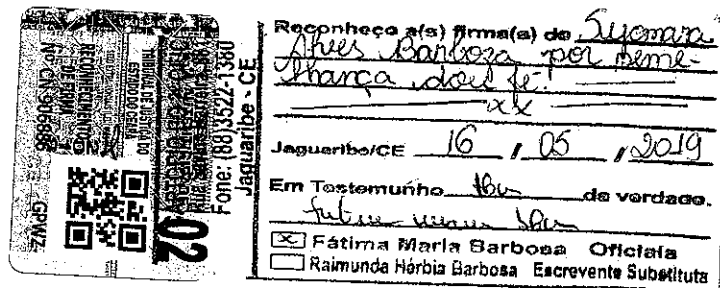 TRIBUNAL DE JUSTIÇA DO
ESTADO DO CEARÁ
RECONHECIMENTO
DE FIRMA
No. CN 906886
GPWZ
02
Fone: (88)3522-1380
Jaguaribe - CE
Reconheço a(s) firma(s) de Syomara
Alves Barboza por seme-
lhança, dou fé!
xx
Jaguaribe/CE 16 / 05 / 2019
Em Testemunho da verdade.
☒ Fátima Maria Barbosa Oficiala
☐ Raimunda Hérbia Barbosa Escrevente Substituta